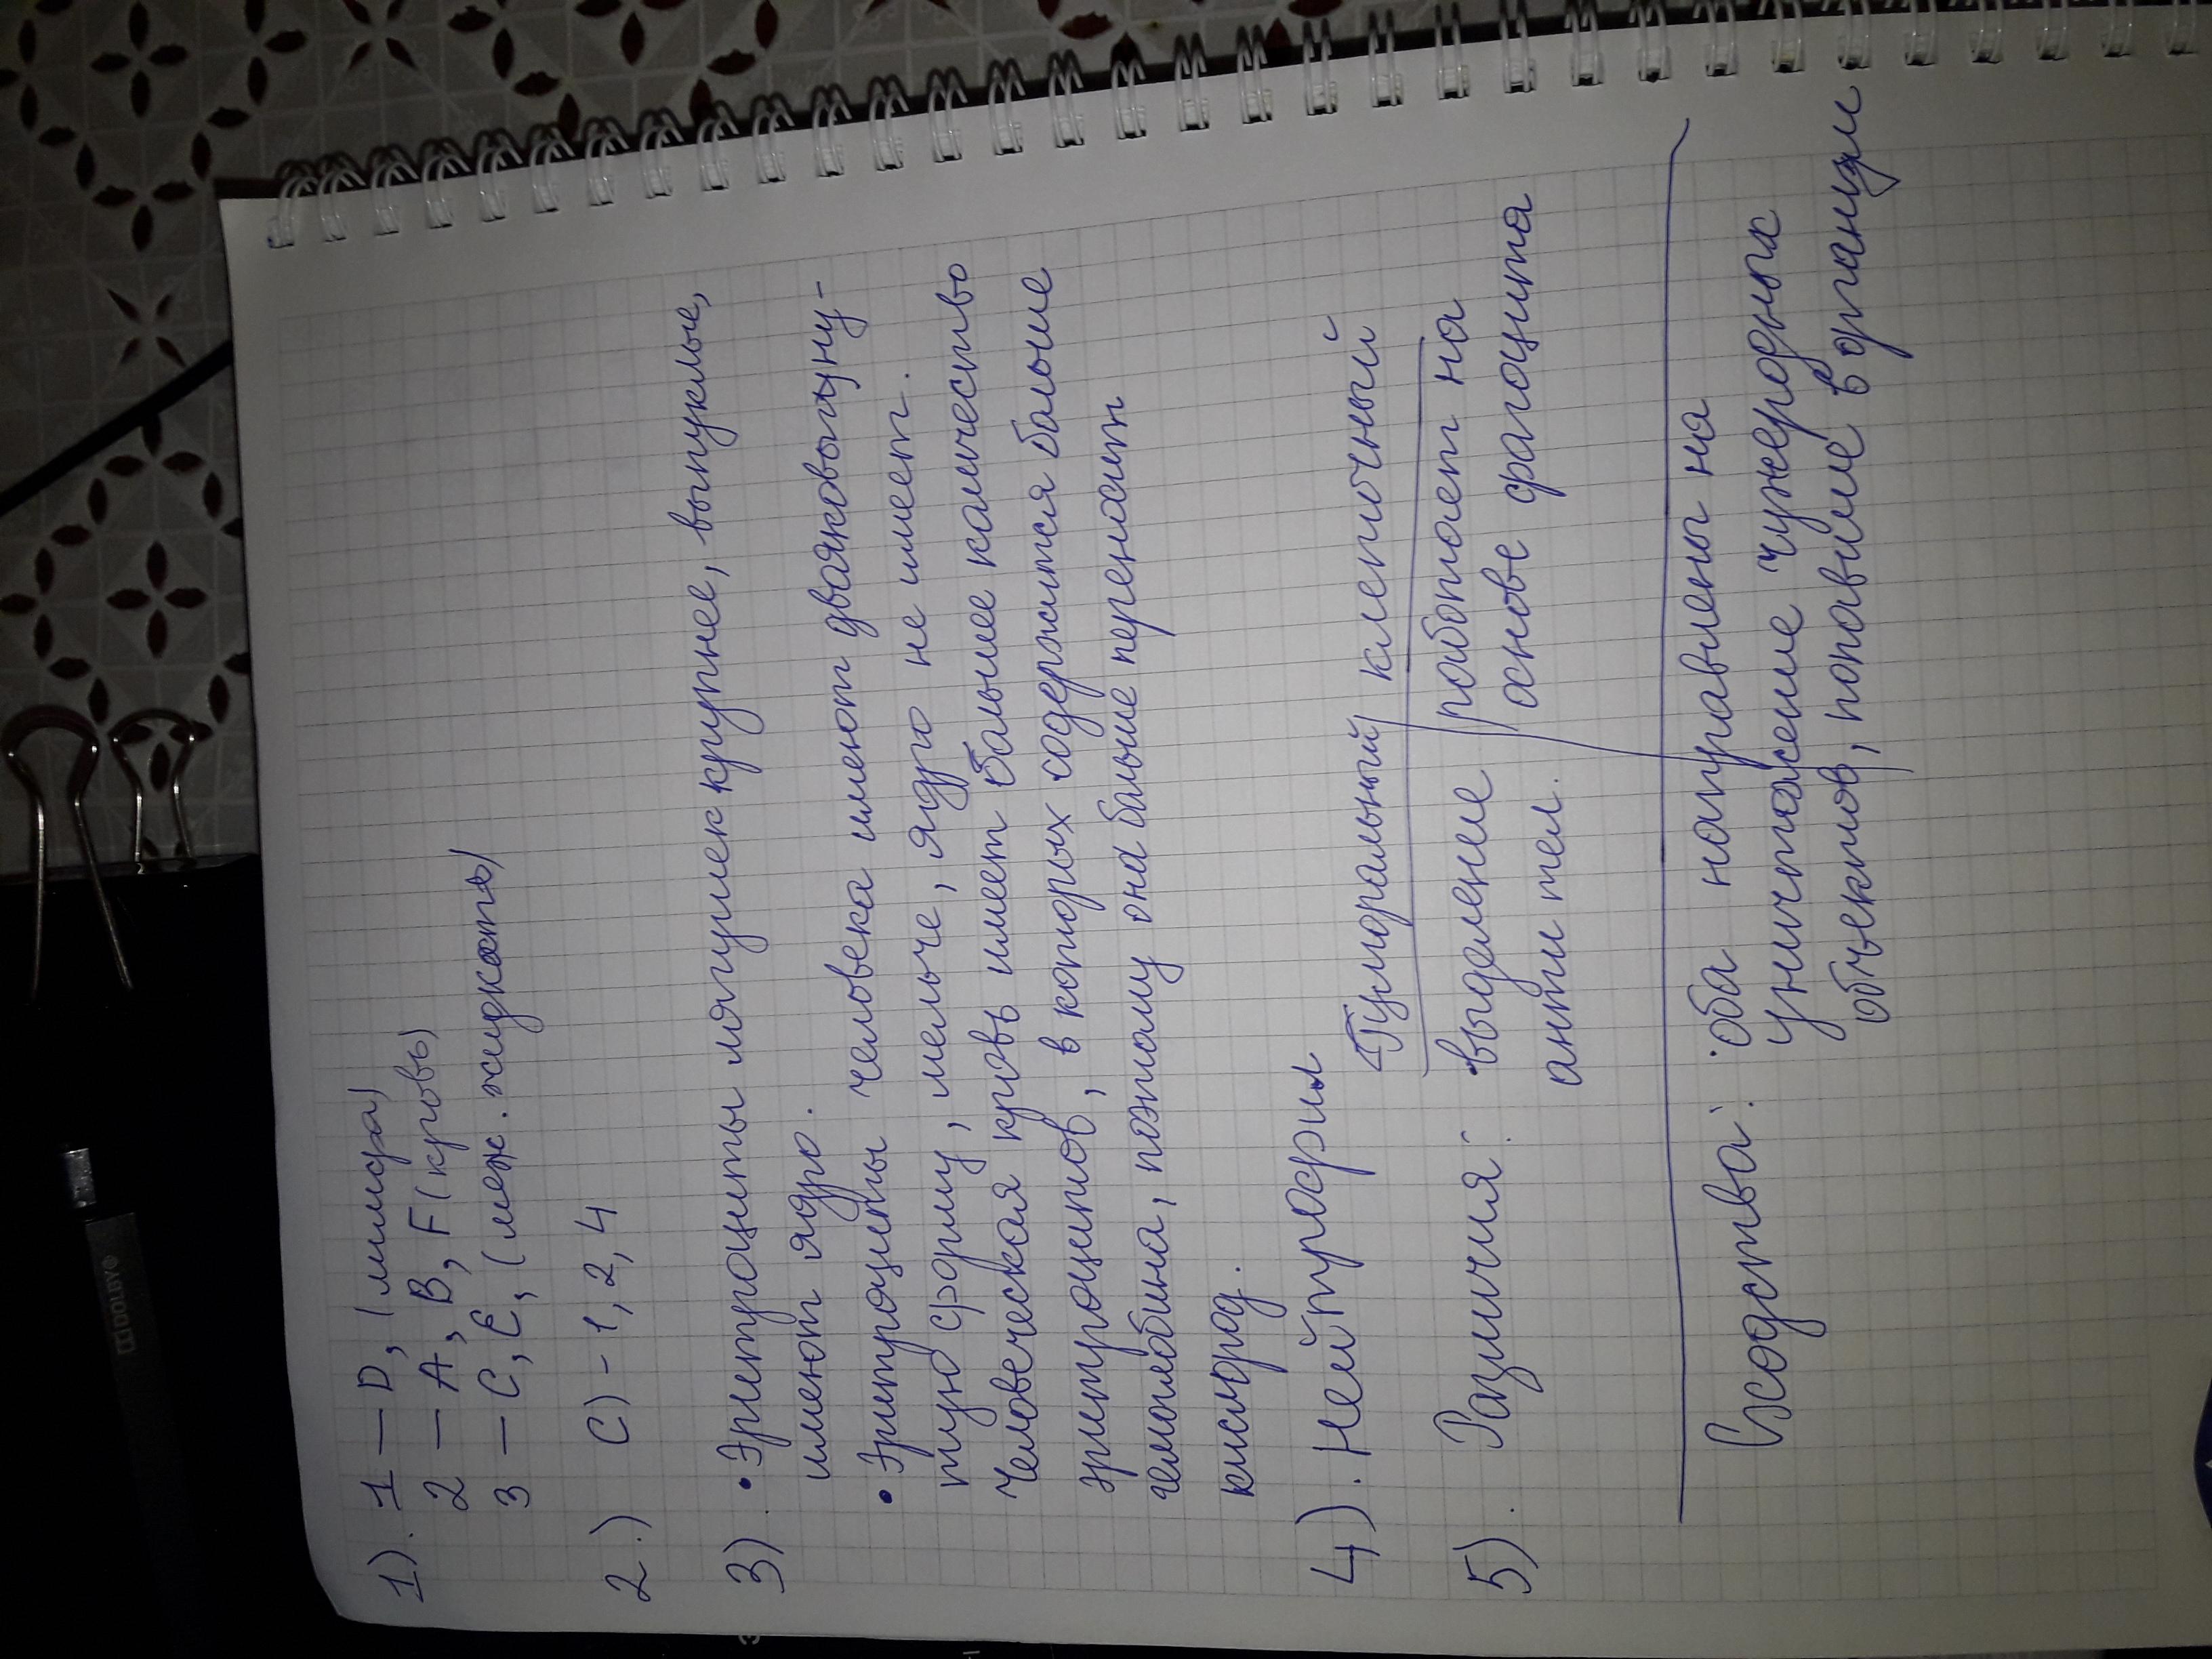 1). 1 — D, (лимфа)
2 — A, B, F (кровь)
3 — C, E, (меж. жидкость)
2.) C) - 1, 2, 4
3). • Эритроциты лягушек крупнее, выпуклые,
имеют ядро.
• Эритроциты человека имеют двояковыпу-
тую форму, мельче, ядро не имеет.
Человеческая кровь имеет большее количество
эритроцитов, в которых содержится больше
гемоглобина, поэтому она больше переносит
кислород.
4). Нейтрофил
Гуморальный клеточный
5). Различия: • выделение работает на
анти тел. основе фагоцита
Сходства: • оба направлены на
уничтожение чужеродных
объектов, попавшие в организм
DOLBY